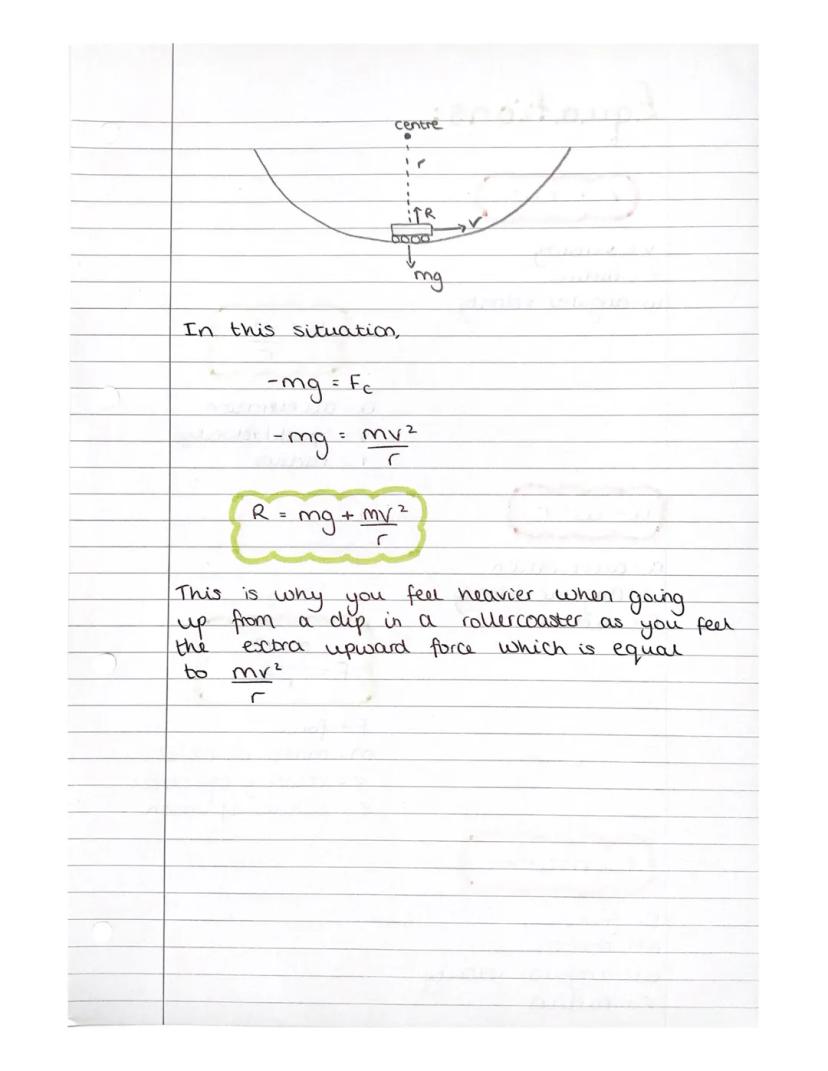 centre
r
R
v
mg
In this situation,
-mg = Fc
-mg = mv²/r
R = mg + mv²/r
This is why you feel heavier when going
up from a dip in a rollercoaster as you feel
the extra upward force which is equal
to mv²/r